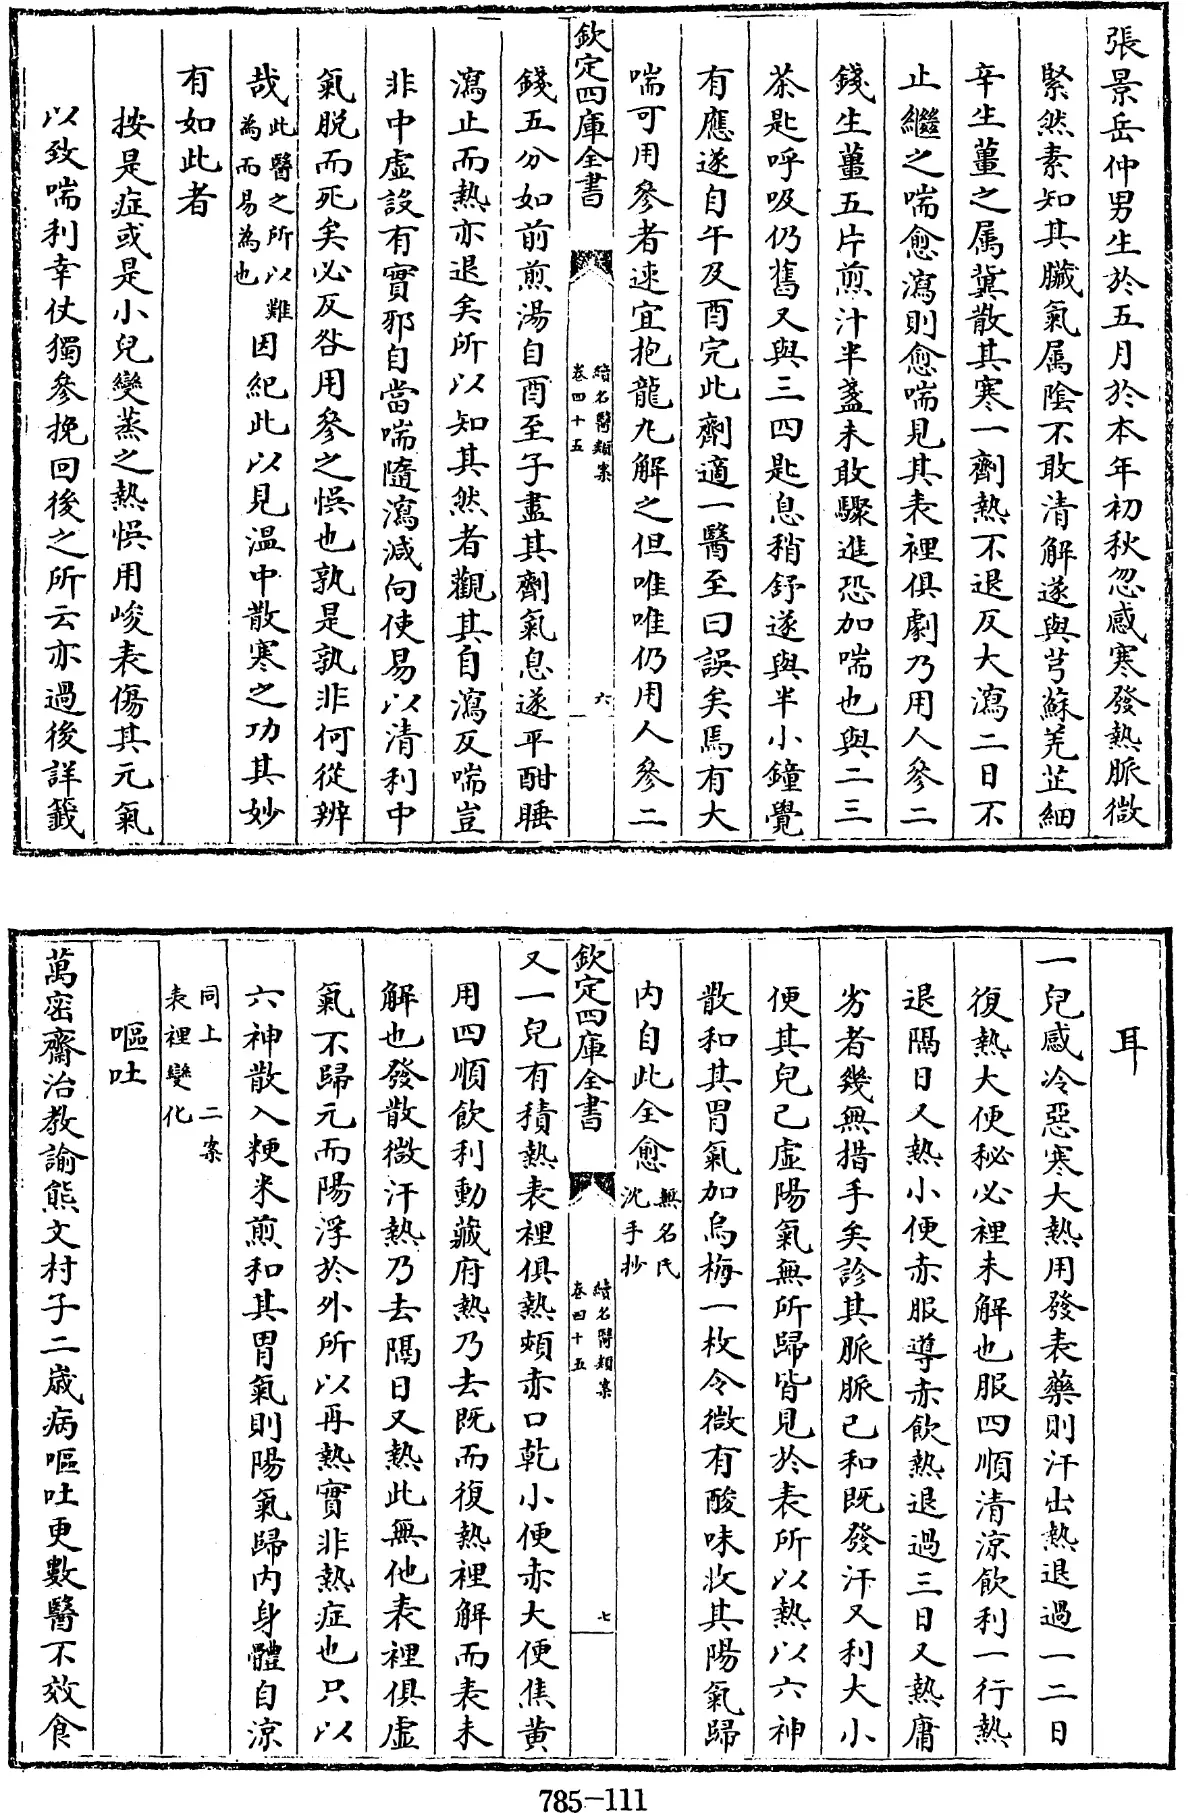 張景岳仲男生於五月於本年初秋忽感寒發熱脈微
緊然素知其臟氣属陰不敢清解遂與芎蘇羌芷細
辛生薑之属冀散其寒一劑熱不退反大瀉二日不
止繼之喘愈瀉則愈喘見其表裡俱劇乃用人參二
錢生薑五片煎汁半盞未敢驟進恐加喘也與二三
茶匙呼吸仍舊又與三四匙息稍舒遂與半小鐘覺
有應遂自午及酉完此劑適一醫至曰誤矣焉有大
喘可用參者速宜抱龍丸解之但唯唯仍用人參二
欽定四庫全書
續名醫類案
卷四十五
六
錢五分如前煎湯自酉至子盡其劑氣息遂平酣睡
瀉止而熱亦退矣所以知其然者觀其自瀉反喘豈
非中虛設有實邪自當喘隨瀉減向使易以清利中
氣脫而死矣必反咎用參之悞也孰是孰非何從辨
哉此醫之所以難為而易為也因紀此以見温中散寒之功其妙
有如此者
按是症或是小兒變蒸之熱悞用峻表傷其元氣
以致喘利幸仗獨參挽回後之所云亦過後詳籖
耳
一兒感冷惡寒大熱用發表藥則汗出熱退過一二日
復熱大便秘必裡未解也服四順清凉飲利一行熱
退隔日又熱小便赤服導赤飲熱退過三日又熱庸
劣者幾無措手矣診其脈脈已和既發汗又利大小
便其兒已虛陽氣無所歸皆見於表所以熱以六神
散和其胃氣加烏梅一枚令微有酸味收其陽氣歸
内自此全愈無名氏沈手抄
欽定四庫全書
續名醫類案
卷四十五
七
又一兒有積熱表裡俱熱頰赤口乾小便赤大便焦黄
用四順飲利動藏府熱乃去既而復熱裡解而表未
解也發散微汗熱乃去隔日又熱此無他表裡俱虛
氣不歸元而陽浮於外所以再熱實非熱症也只以
六神散入粳米煎和其胃氣則陽氣歸内身體自涼
同上二案
表裡變化
嘔吐
萬密齋治教諭熊文村子二歲病嘔吐更數醫不效食
785-111